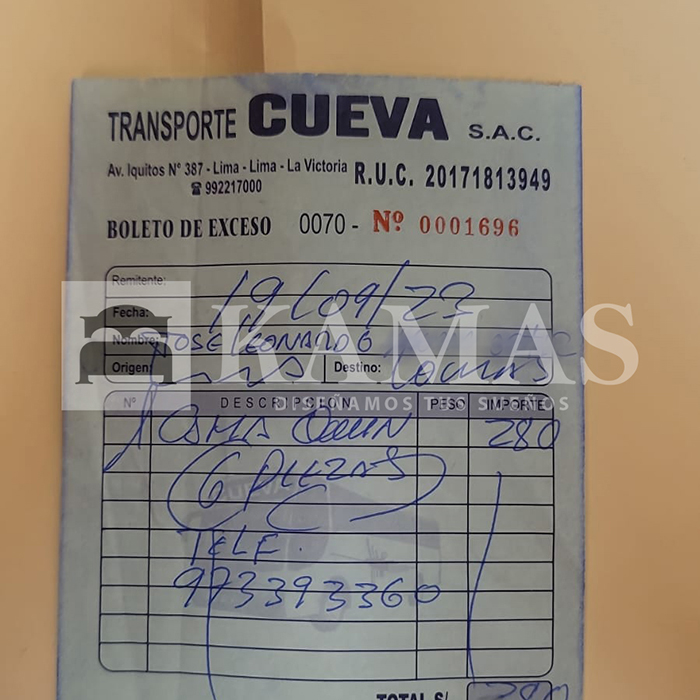 TRANSPORTE CUEVA S.A.C.
Av. Iquitos Nº 387 - Lima - Lima - La Victoria
☎ 992217000
R.U.C. 20171813949
BOLETO DE EXCESO 0070 - Nº 0001696
Remitente:
Fecha: 19/09/23
Nombre: JOSE LEONARDO
Origen: Destino:
KAMAS
DISEÑAMOS TUS SUEÑOS
Nº DESCRIPCIÓN PESO IMPORTE
1 280
(6 PIEZAS)
TELF.
973393360
TOTAL S/